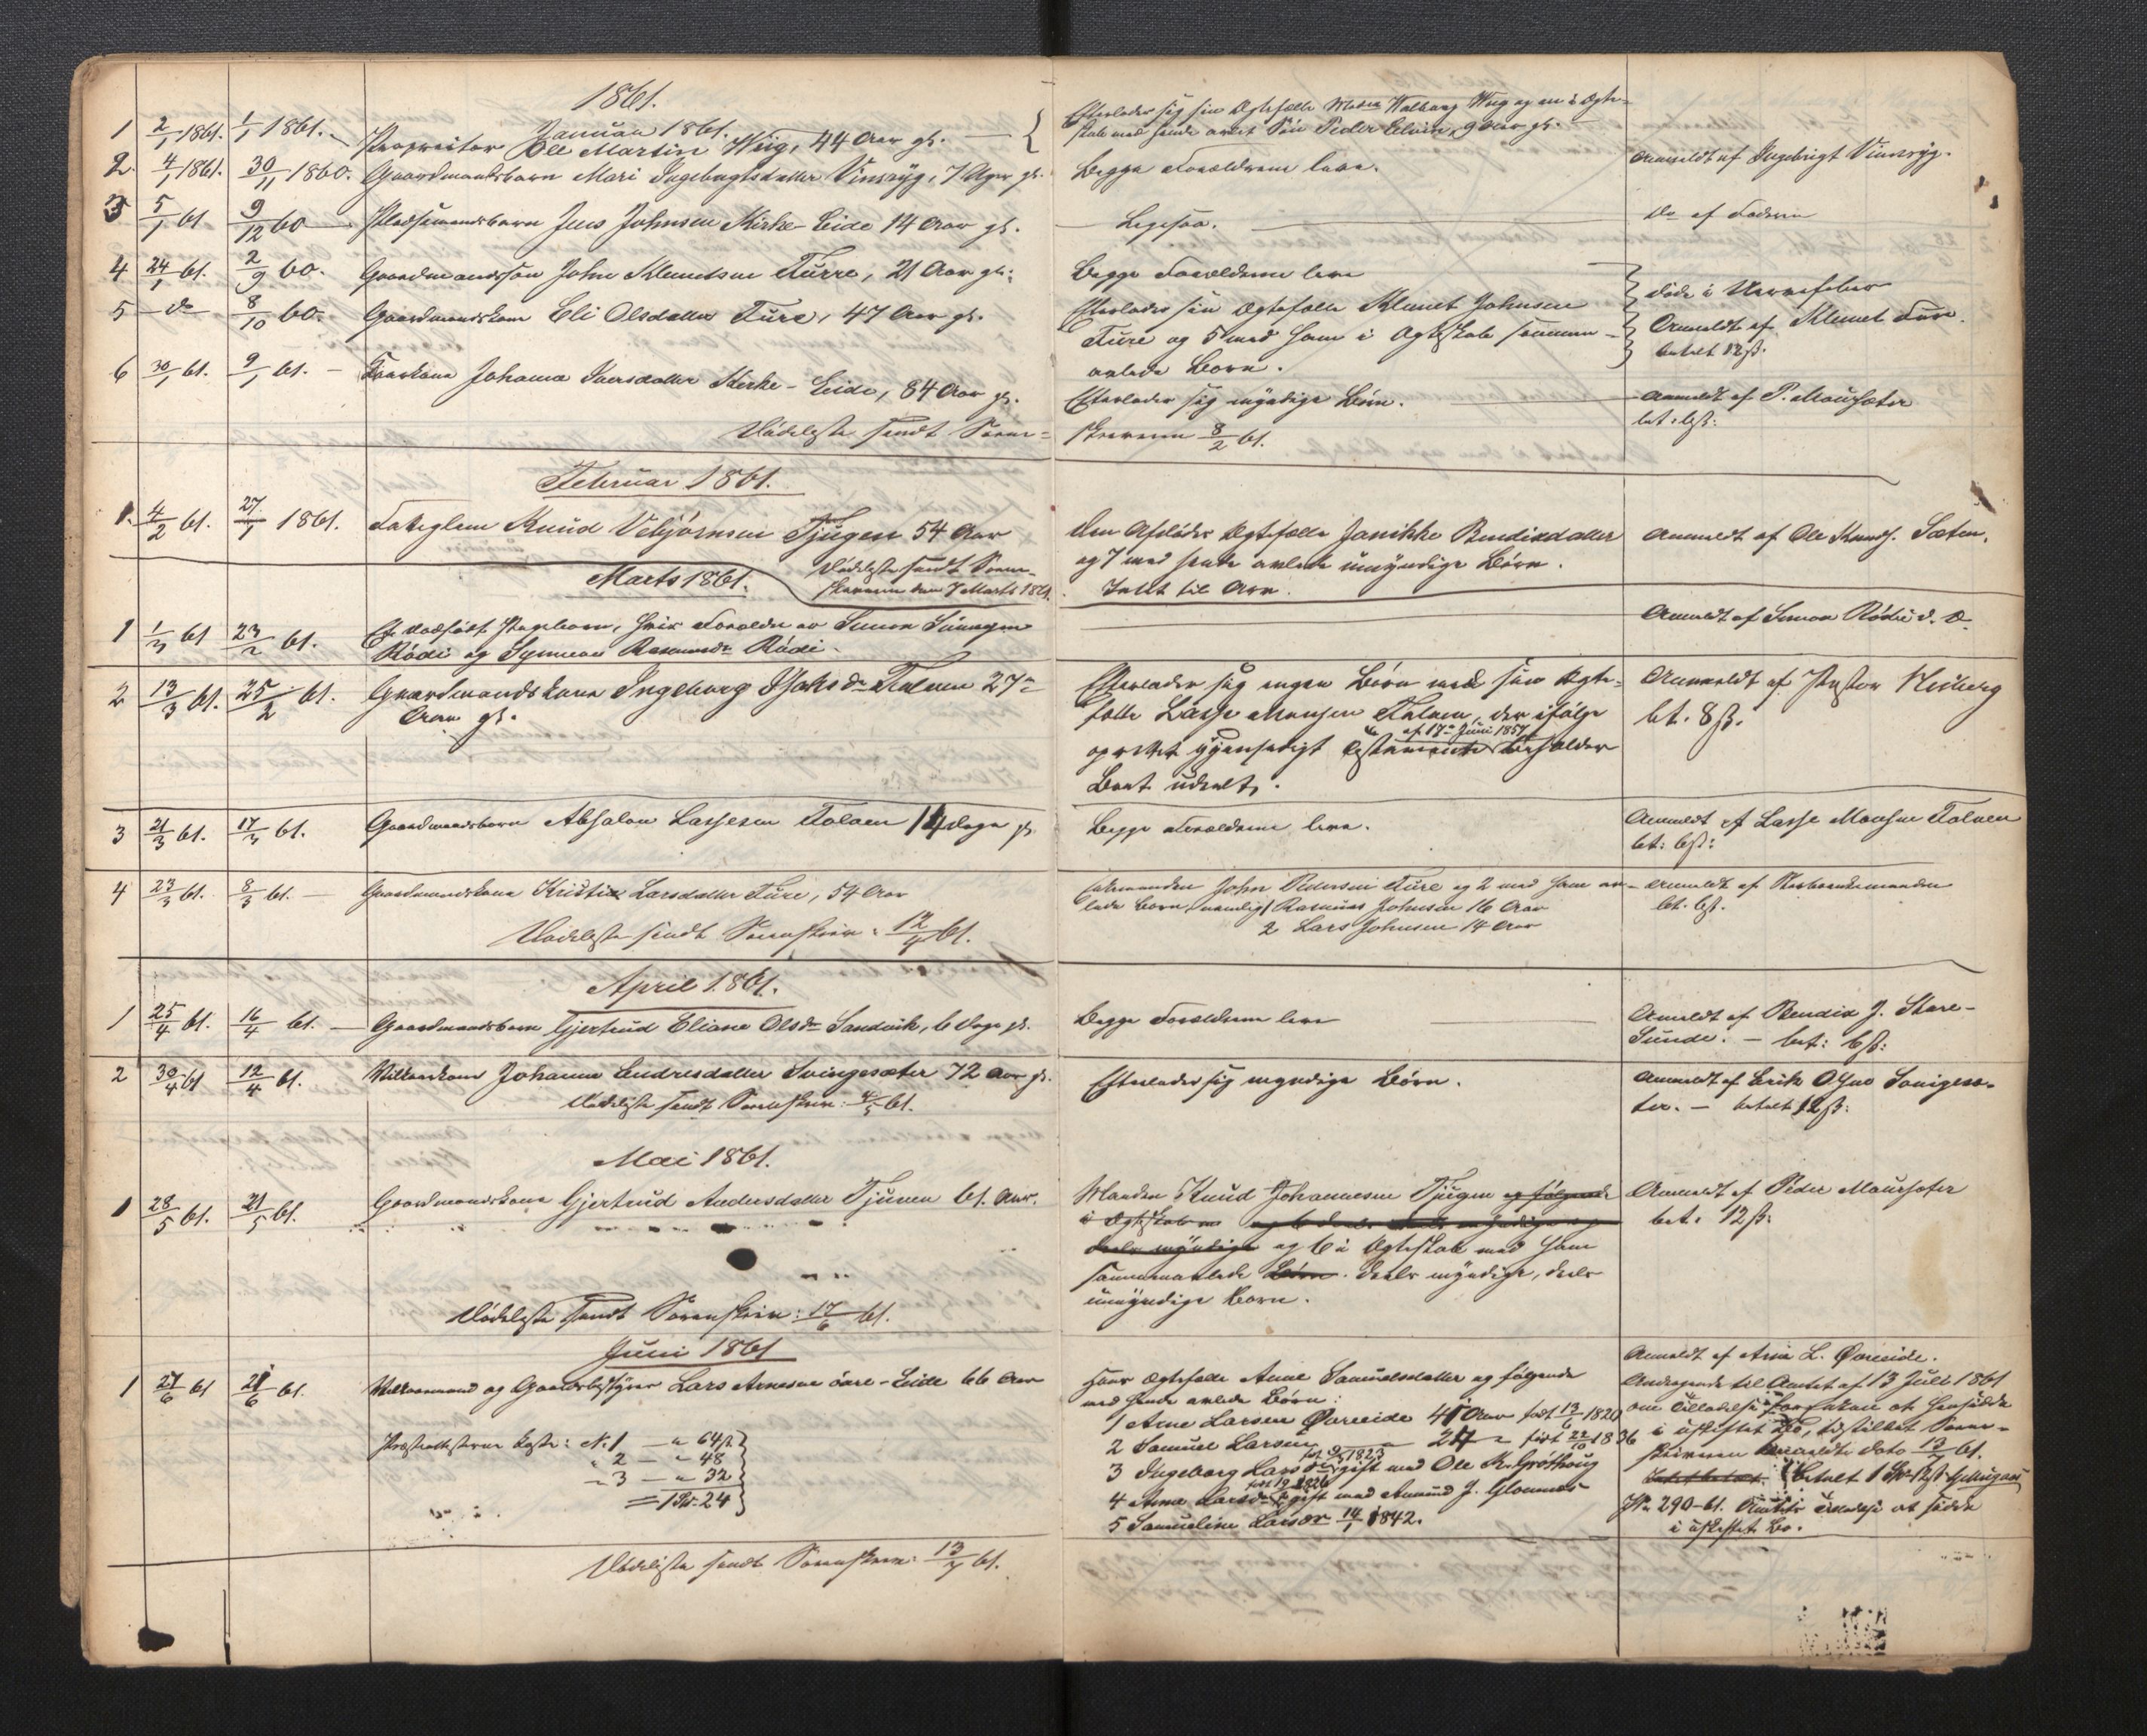 1861.
Januar 1861.
1 2/1 1861. 1/1 1861. Proprietær Ole Martin Wiig, 44 Aar gl. Efterlader sig sin Ægtefælle Walborg Wiig og en i Ægte-
skab med hende avlet Søn Peder Elvin, 9 Aar gl.
2. 4/1 1861. 30/11 1860. Gaardmandsbarn Mari Ingebrigtsdatter Vinsryg, 7 Ager gl. Begge Forældrene leve. Anmeldt af Ingebrigt Vinsryg.
3 5/1 61 9/12 60 Pladsemandsbarn Jens Johnsen Kirke-Eide 14 Aar gl. Ligesaa. Do af Faderen
4 24/1 61. 2/9 60. Gaardmandssøn John Klemetsen Furre, 21 Aar gl. Begge Forældrene leve
5 do 8/10 60. Gaardmandskone Eli Olsdatter Fure, 47 Aar gl. Efterlader sin Ægtefælle Klemet Johnsen
Fure og 5 med ham i Ægteskab sammen-
avlede Børn.
døde i Nervefeber
Anmeldt af Klemet Fure.
betalt 12 ß.
6 30/1 61. 9/1 61. Kaarkone Johanna Iversdatter Kirke-Eide, 84 Aar gl. Efterlader sig myndige Børn. Anmeldt af P. Maursæter
bet. 6ß.
Dødsliste sendt Soren- skriveren 8/2 61.
Februar 1861.
1. 4/2 61. 27/1 1861. Fattiglem Knud Vebjørnsen Tjugen 54 Aar Den Afdødes Ægtefælle Janikke Bendixdatter
og 7 med hende avlede umyndige Børn.
Intet til Arv.
Anmeldt af Ole Knuds. Sæten.
Dødsliste sendt Soren-
skriveren den 7 Marts 1861.
Marts 1861.
1 1/3 61 23/2 61. Et dødfødt Pigebarn, hvis Forældre er Simon
Rødi og Synneva Rasmusdr Rødi. Anmeldt af Simon Rødi d. D.
2 13/3 61. 25/2 61. Gaardmandskone Ingeborg Isaksdr Folven 27
Aar gl.
Efterlader sig ingen Børn med sin Ægte-
fælle Lasse Monsen Folven, der ifølge
oprettet gjensidigt Testamente af 17de Juni 1857 beholder
Boet udeelt.
Anmeldt af Pastor
bet. 8 ß.
3 21/3 61. 17/3 61. Gaardmandsbarn Absalon Lassesen Folven 14 Dage gl. Begge Forældrene leve. Anmeldt af Lasse Monsen Folven
bet: 6ß:
4 23/3 61. 8/3 61. Gaardmandskone Kristin Larsdatter Fure, 54 Aar Enkemanden John Pedersen Fure og 2 med ham av-
lede Børn, nemlig 1 Rasmus Johnsen 16 Aar
2 Lars Johnsen 14 Aar
Anmeldt af
bet. 6ß.
Dødsliste sendt Sorenskriv: 12/4 61.
April 1861.
1 25/4 61. 16/4 61. Gaardmandsbarn Gjertrud Eliane Olsdr Sandvik, 6 Dage gl. Begge Forældrene leve Anmeldt af Bendix J. Stare-
Sunde. – bet: 6ß:
2 30/4 61 12/4 61. Vilkaarskone Johanna Endresdatter Svingesæter 72 Aar gl. Efterlader sig myndige Børn. Anmeldt af Erik Svingesæ-
ter. – betalt 12ß:
Dødsliste sendt Sorenskriv: 4/5 61.
Mai 1861.
1 28/5 61. 21/5 61. Gaardmandskone Gjertrud Andersdatter Tjugen 61. Aar. Manden Knud Johannesen Tjugen og følgende
i Ægteskab
deels myndige og 6 i Ægteskab med ham
sammenavlede Børn. deels myndige, deels
umyndige Børn.
Anmeldt af Peder Maursæter
bet. 12 ß.
Dødsliste sendt Sorenskriv: 17/6 61.
Juni 1861
1 27/6 61 21/6 61. Vilkaarsmand og Gaardbestyrer Lars Arnesen Øvre-Eide 66 Aar
Hans Ægtefælle Anne Samuelsdatter og følgende
med hende avlede Børn:
1 Arne Larsen Øvreeide 41 Aar født 13/6 1820
2 Samuel Larsen 24 født 22/10 1836
3 Ingeborg Larsdr gift med Ole R. Grøthaug
4 Anna Larsdr gift med Amund J. Glomnes
5 Samueline Larsdr 14/1 1842.
Anmeldt af Arne L. Øvreeide.
Andragende til Amtet af 13 Juli 1861
om Tilladelse for Enken at hensidde
i uskiftet Bo, tilstillet Soren-
skriveren dato 13/7 61.
No 290-61. Amtets Tilladelse at sidde
i uskiftet Bo.
Præsteattesterne koste: No. 1 – " 64 ß
" 2 – " 48
" 3 – " 32
= 1 Sp. 24
Dødsliste sendt Sorenskriv: 13/7 61.